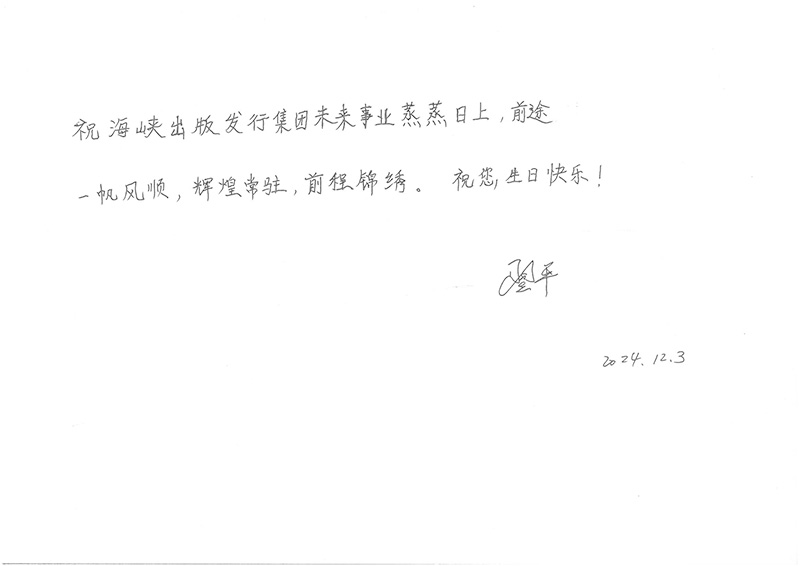 祝海峡出版发行集团未来事业蒸蒸日上,前途
一帆风顺,辉煌常驻,前程锦绣。 祝您,生日快乐!
平
2024.12.3